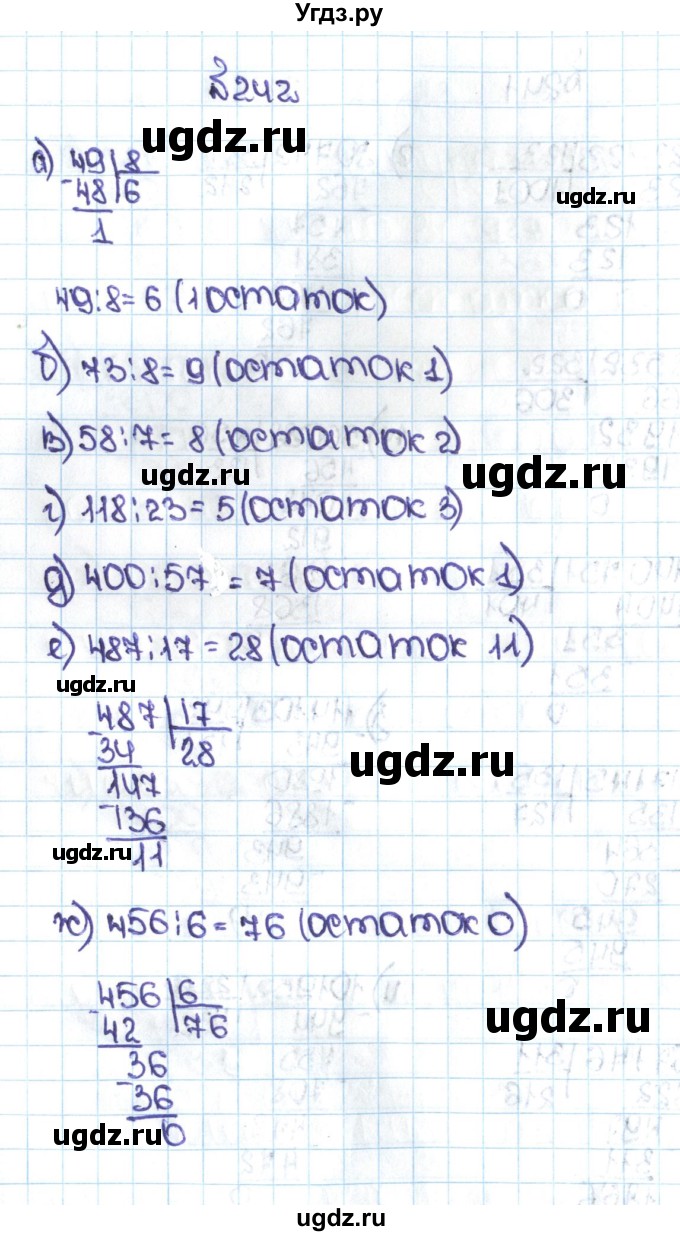 Угдз.ру
№242
ugdz.ru
а) 49|8
ugdz.ru
-48|6
1
49:8=6 (1 остаток)
б) 73:8=9 (остаток 1)
в) 58:7=8 (остаток 2)
ugdz.ru ugdz.ru
г) 118:23=5 (остаток 3)
д) 400:57=7 (остаток 1)
е) 487:17=28 (остаток 11)
ugdz.ru
-487|17
34 |28
ugdz.ru
147
-136
ugdz.ru 11
ж) 456:6=76 (остаток 0)
-456|6
42 |76
ugdz.ru
36
-36
ugdz.ru 0
ugdz.ru